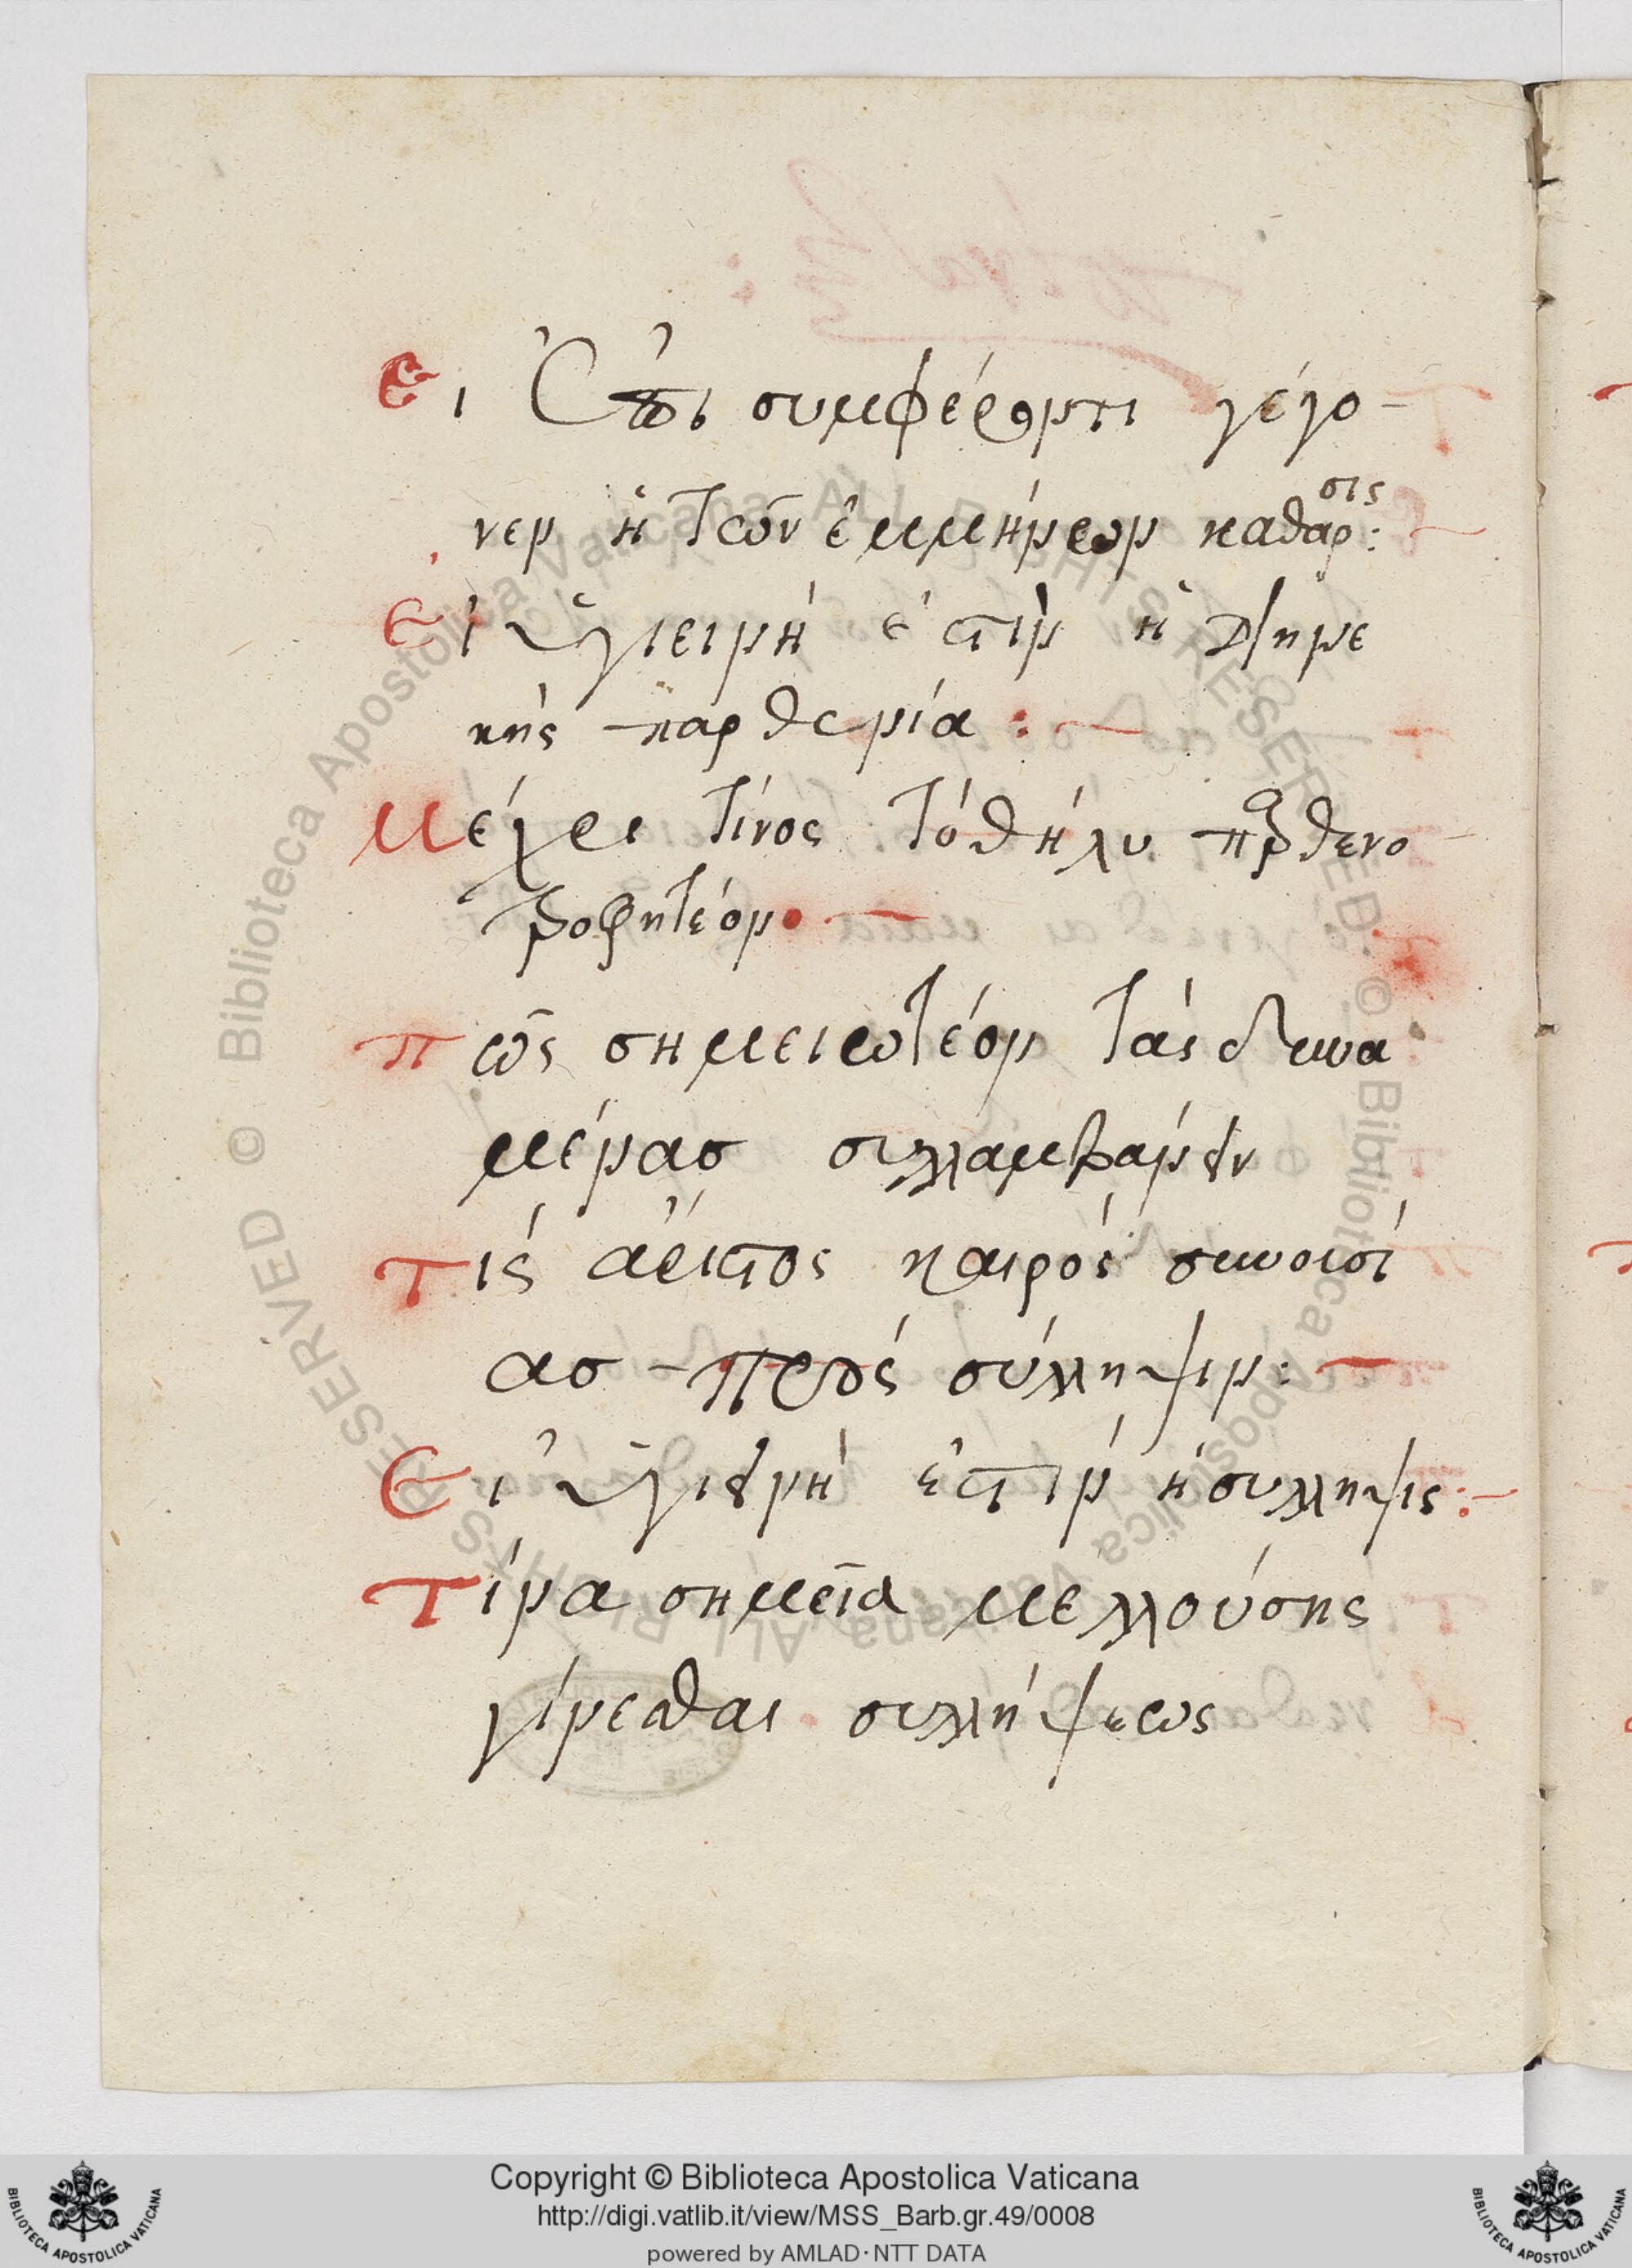 Ει ἐπι συμφέροντι γέγο-
νεν ἡ τῶν ἐμμήνων καθαρσις:
Εἰ ὑγιεινή ἐστὶν ἡ διηνε
κής παρθενία :
Μέχρι τίνος τό θήλυ παρθενο
τροφητέον·
πῶς σημειωτέον τάς δυνα
μένασ συλλαμβάνειν
τίς ἄριστος καιρός συνουσί
ασ πρός σύλληψιν:
Εἰ ὑγιεινή ἐστίν ἡ συλληψις:
τίνα σημεῖα μελλούσης
γίνεσθαι συλλήψεως
Biblioteca Apostolica Vaticana ALL RIGHTS RESERVED ©
Biblioteca Apostolica Vaticana ALL RIGHTS RESERVED ©
Copyright © Biblioteca Apostolica Vaticana
http://digi.vatlib.it/view/MSS_Barb.gr.49/0008
powered by AMLAD·NTT DATA
BIBLIOTECA APOSTOLICA VATICANA
BIBLIOTECA APOSTOLICA VATICANA